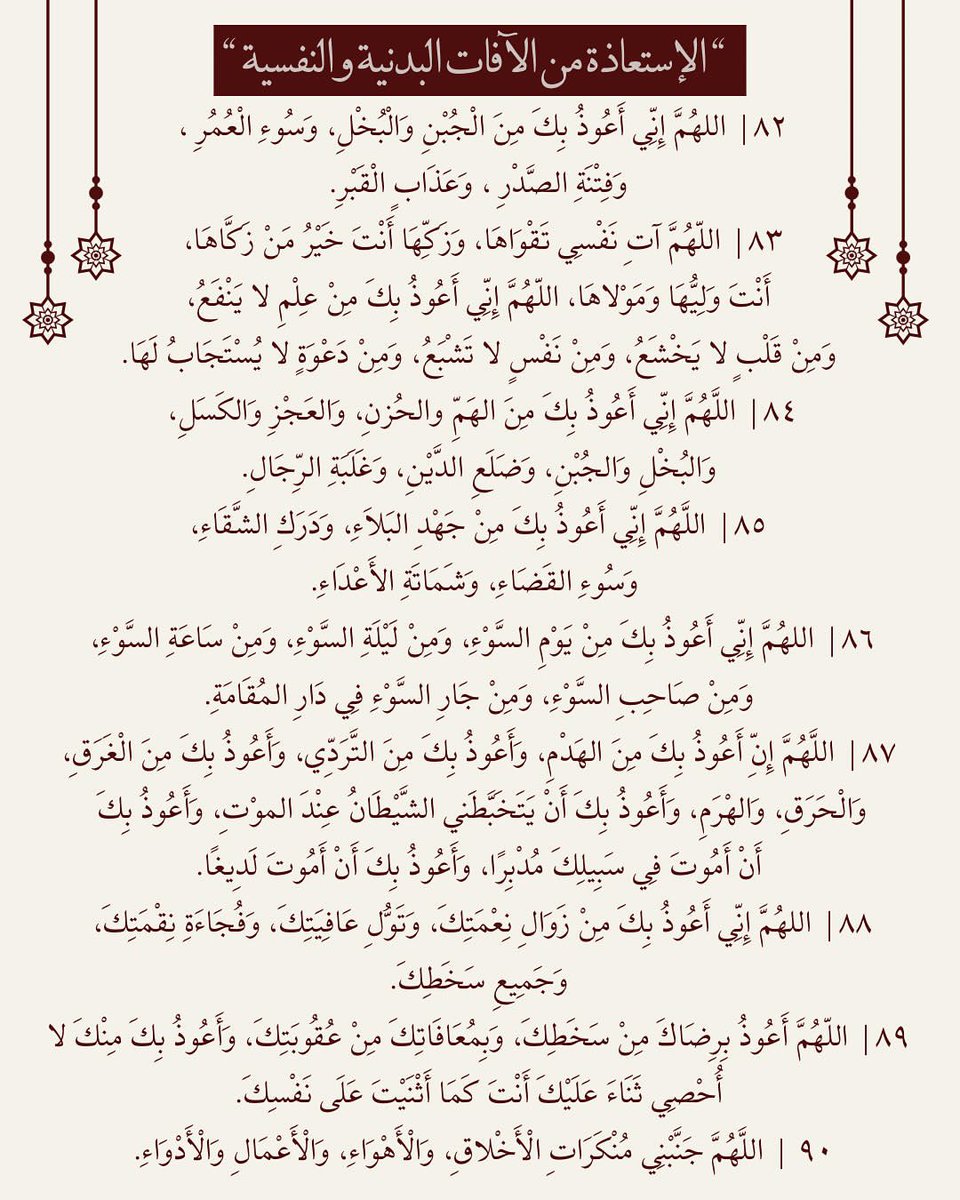 “الإستعاذة من الآفات البدنية والنفسية“
٨٢| اللهُمَّ إِنِّي أَعُوذُ بِكَ مِنَ الْجُبْنِ وَالْبُخْلِ، وَسُوءِ الْعُمُرِ ،
وَفِتْنَةِ الصَّدْرِ ، وَعَذَابِ الْقَبْرِ.
٨٣| اللّهُمَّ آتِ نَفْسِي تَقْوَاهَا، وَزَكِّهَا أَنْتَ خَيْرُ مَنْ زَكَّاهَا،
أَنْتَ وَلِيُّهَا وَمَوْلاهَا، اللّهُمَّ إِنِّي أَعُوذُ بِكَ مِنْ عِلْمِ لا يَنْفَعُ،
وَمِنْ قَلْبٍ لا يَخْشَعُ، وَمِنْ نَفْسٍ لا تَشْبَعُ، وَمِنْ دَعْوَةٍ لا يُسْتَجَابُ لَهَا.
٨٤| اللَّهُمَّ إِنِّي أَعُوذُ بِكَ مِنَ الهَمِّ والحُزنِ، وَالعَجْزِ وَالكَسَلِ،
وَالبُخْلِ وَالجُبْنِ، وَضَلَعِ الدَّيْنِ، وَغَلَبَةِ الرِّجَالِ.
٨٥| اللَّهُمَّ إِنِّي أَعُوذُ بِكَ مِنْ جَهْدِ البَلاَءِ، وَدَرَكِ الشَّقَاءِ،
وَسُوءِ القَضَاءِ، وَشَمَاتَةِ الأَعْدَاءِ.
٨٦| اللهُمَّ إِنِّي أَعُوذُ بِكَ مِنْ يَوْمِ السَّوْءِ، وَمِنْ لَيْلَةِ السَّوْءِ، وَمِنْ سَاعَةِ السَّوْءِ،
وَمِنْ صَاحِبِ السَّوْءِ، وَمِنْ جَارِ السَّوْءِ فِي دَارِ المُقَامَةِ.
٨٧| اللَّهُمَّ إِنِّ أَعُوذُ بِكَ مِنَ الهَدْمِ، وَأَعُوذُ بِكَ مِنَ التَّرَدِّي، وَأَعُوذُ بِكَ مِنَ الْغَرَقِ،
وَالْحَرَقِ، وَالهْرَمِ، وَأَعُوذُ بِكَ أَنْ يَتَخَبَّطَني الشَّيْطَانُ عِنْدَ الموْتِ، وَأَعُوذُ بِكَ
أَنْ أَمُوتَ فِي سَبِيلِكَ مُدْبِرًا، وَأَعُوذُ بِكَ أَنْ أَمُوتَ لَدِيغًا.
٨٨| اللهُمَّ إِنِّي أَعُوذُ بِكَ مِنْ زَوَالِ نِعْمَتِكَ، وَتَوُّلِ عَافِيَتِكَ، وَفُجَاءَةِ نِقْمَتِكَ،
وَجَمِيعِ سَخَطِكَ.
٨٩| اللّهُمَّ أَعُوذُ بِرِضَاكَ مِنْ سَخَطِكَ، وَبِمُعَافَاتِكَ مِنْ عُقُوبَتِكَ، وَأَعُوذُ بِكَ مِنْكَ لا
أُحْصِي ثَنَاءَ عَلَيْكَ أَنْتَ كَمَا أَثْنَيْتَ عَلَى نَفْسِكَ.
٩٠ | اللَّهُمَّ جَنَّبْنِي مُنْكَرَاتِ الْأَخْلاقِ، وَالْأَهْوَاءِ، وَالْأَعْمَالِ وَالْأَدْوَاءِ.